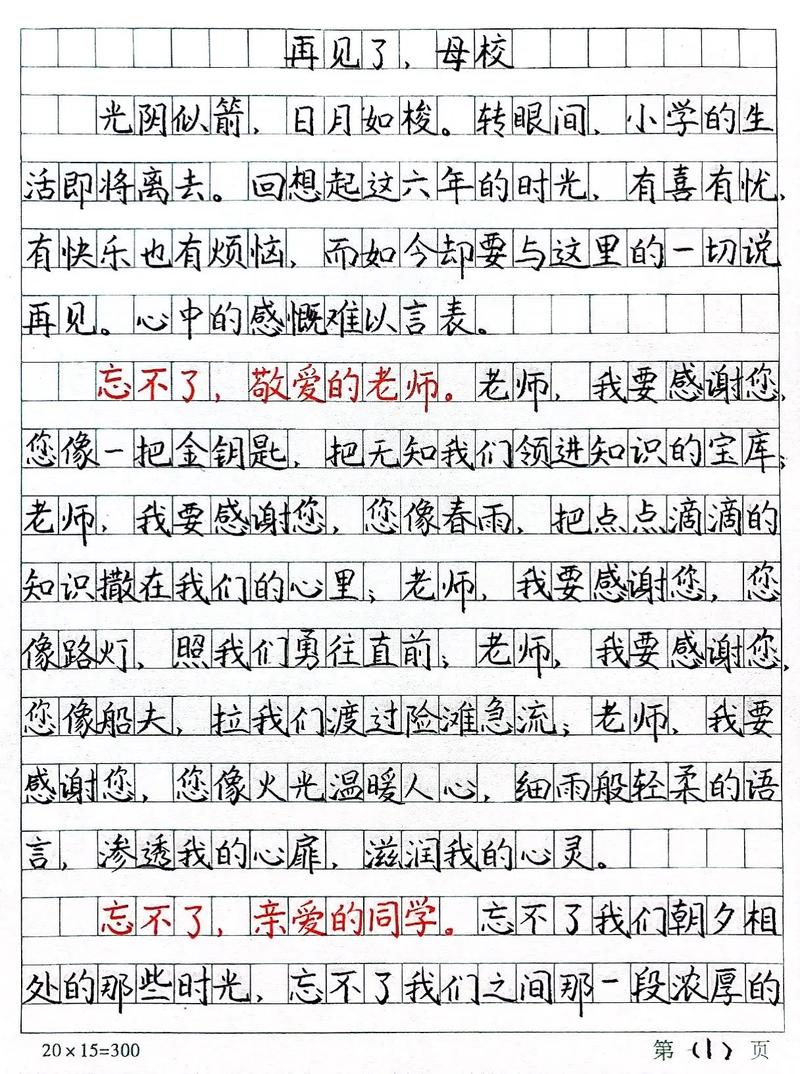 再见了，母校
光阴似箭，日月如梭。转眼间，小学的生
活即将离去。回想起这六年的时光，有喜有忧，
有快乐也有烦恼，而如今却要与这里的一切说
再见。心中的感慨难以言表。
忘不了，敬爱的老师。老师，我要感谢您，
您像一把金钥匙，把无知我们领进知识的宝库；
老师，我要感谢您，您像春雨，把点点滴滴的
知识撒在我们的心里；老师，我要感谢您，您
像路灯，照我们勇往直前；老师，我要感谢您，
您像船夫，拉我们渡过险滩急流；老师，我要
感谢您，您像火光温暖人心，细雨般轻柔的语
言，渗透我的心扉，滋润我的心灵。
忘不了，亲爱的同学。忘不了我们朝夕相
处的那些时光，忘不了我们之间那一段浓厚的
20×15=300 第（1）页